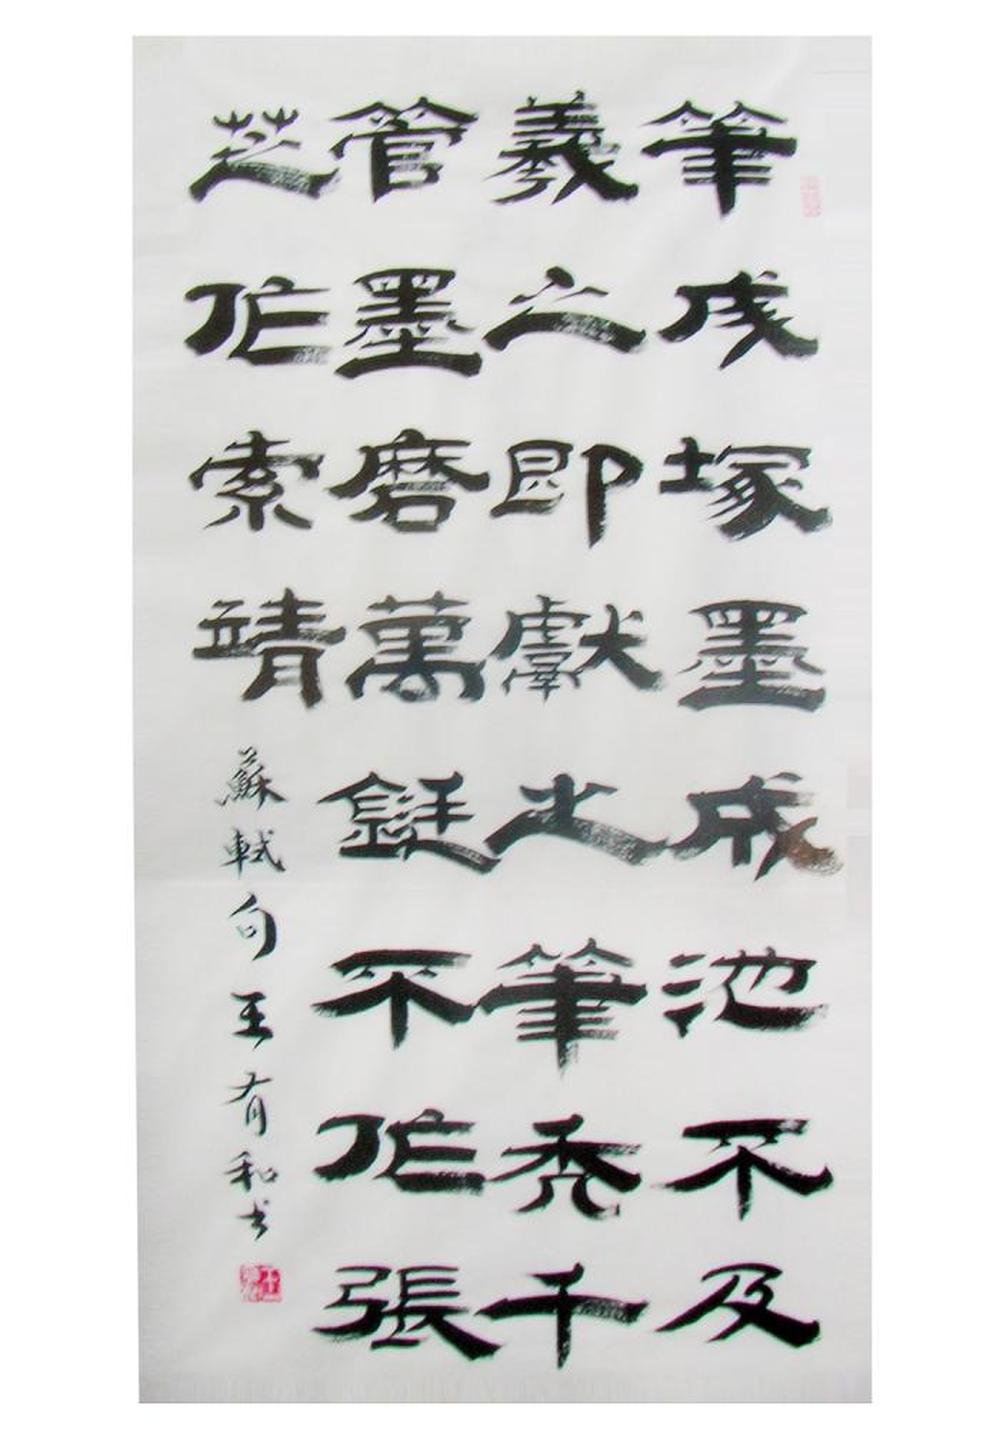 筆成塚墨成池不及
羲之即獻之筆禿千
管墨磨萬鋌不作張
芝作索靖
蘇軾句王有和书